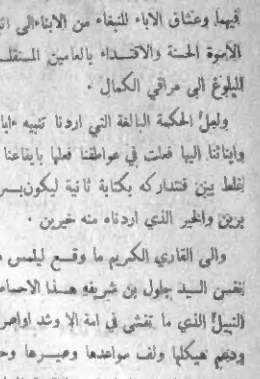 فيهما وعشاق الاباء للنبغاء من الابناء الى
الاسوة الحسنة والاقتداء بالعامين
البلوغ الى مراقي الكمال .
ولعل الحكمة البالغة التي اردنا تنبيه
وابنائنا اليها فعلت في عواطفنا فعلها بايقاعنا
لغلط بين فنتداركه بكتابة ثانية
برين والخير الذي اردناه منه خيرين .
والى القاري الكريم ما وقع ليلمس
نفس السيد جلول بن شريفه هذا
النبيل الذي ما تفشى في امة الا وشد
ودعم هيكلها ولف سواعدها